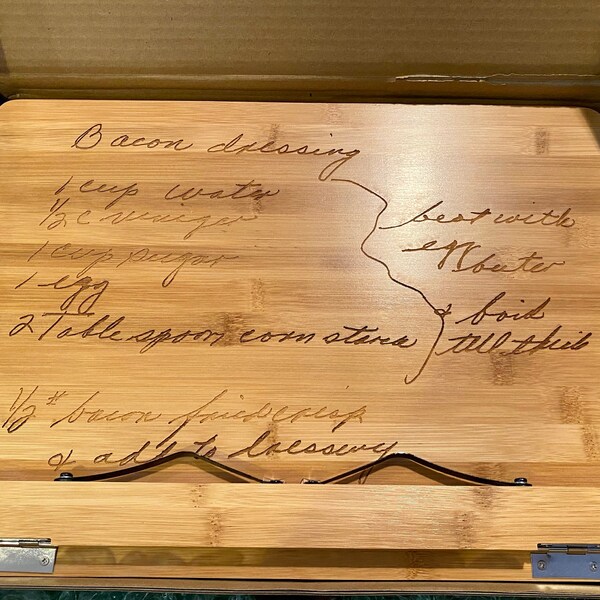 Bacon dressing
1 cup water
1/2 c vinegar
1 cup sugar
1 egg
2 Table spoon corn starch
beat with
egg
beater
& boil
till thick
1/2 # bacon fried crisp
& add to dressing